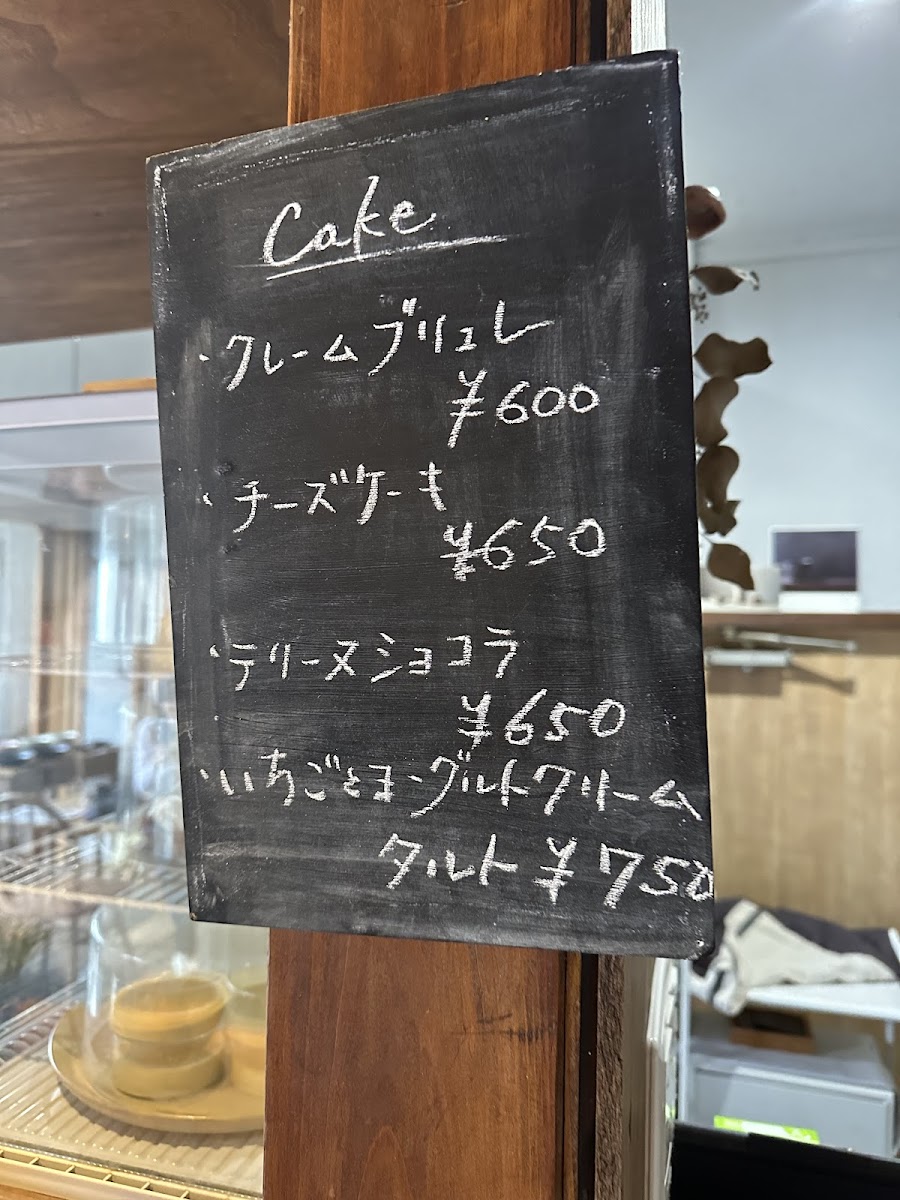 Cake
・クレームブリュレ
¥600
・チーズケーキ
¥650
・テリーヌショコラ
¥650
・いちごとヨーグルトクリーム
タルト ¥750